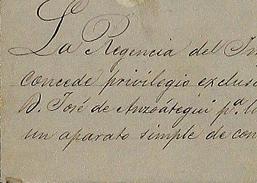 La Regencia del
concede privilegio
D. José de Anzoátegui pª.
un aparato simple de con